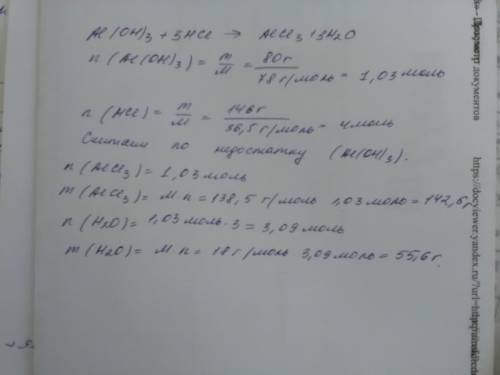 Al(OH)3 + 3HCl → AlCl3 + 3H2O
n (Al(OH)3) = m/M = 80г/78 г/моль = 1,03 моль
n (HCl) = m/M = 146г/36,5 г/моль = 4 моль
Считаем по недостатку (Al(OH)3).
n (AlCl3) = 1,03 моль
m (AlCl3) = M·n = 138,5 г/моль · 1,03 моль = 142,6 г
n (H2O) = 1,03 моль · 3 = 3,09 моль
m (H2O) = M·n = 18 г/моль · 3,09 моль = 55,6 г.
Просмотр документов
https://docviewer.yandex.ru/?url=